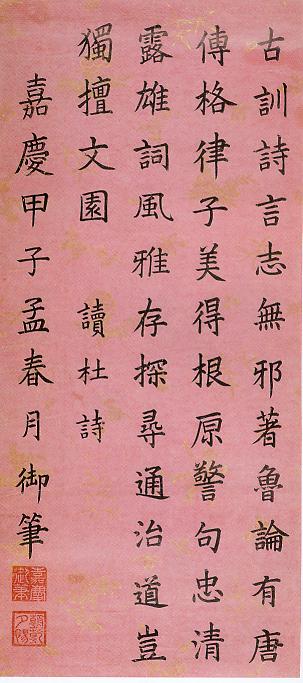 古訓詩言志無邪著魯論有唐
傳格律子美得根原警句忠清
露雄詞風雅存探尋通治道豈
獨擅文園 讀杜詩
嘉慶甲子孟春月御筆
嘉慶御筆